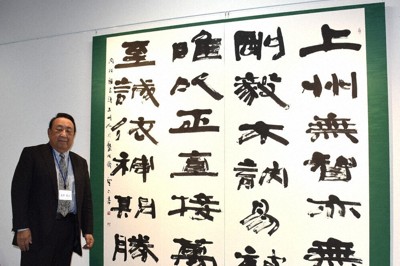 上州無智亦無
剛毅木訥易被
唯以正直接萬
至誠依神期勝